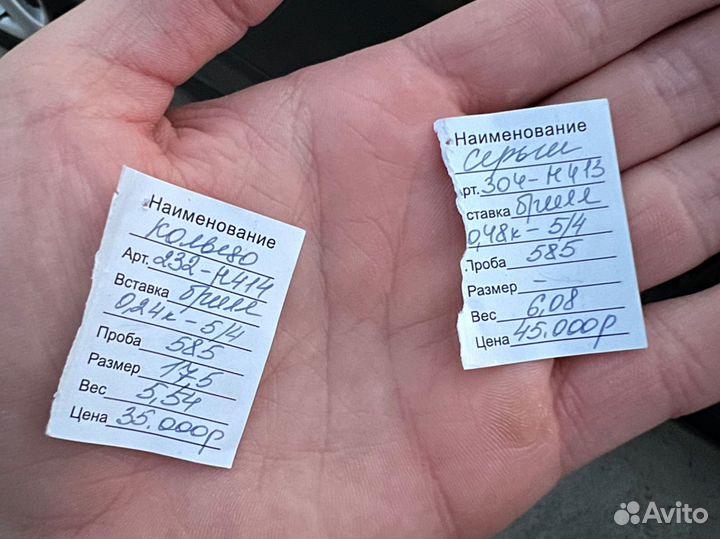 Наименование
кольцо
Арт. 232-Н414
Вставка брилл
0,24к-5/4
Проба 585
Размер 17,5
Вес 5,54
Цена 35.000р
Наименование
серьги
рт. 304-Н413
ставка брилл
0,48к-5/4
Проба 585
Размер -
Вес 6,08
Цена 45.000р
Avito